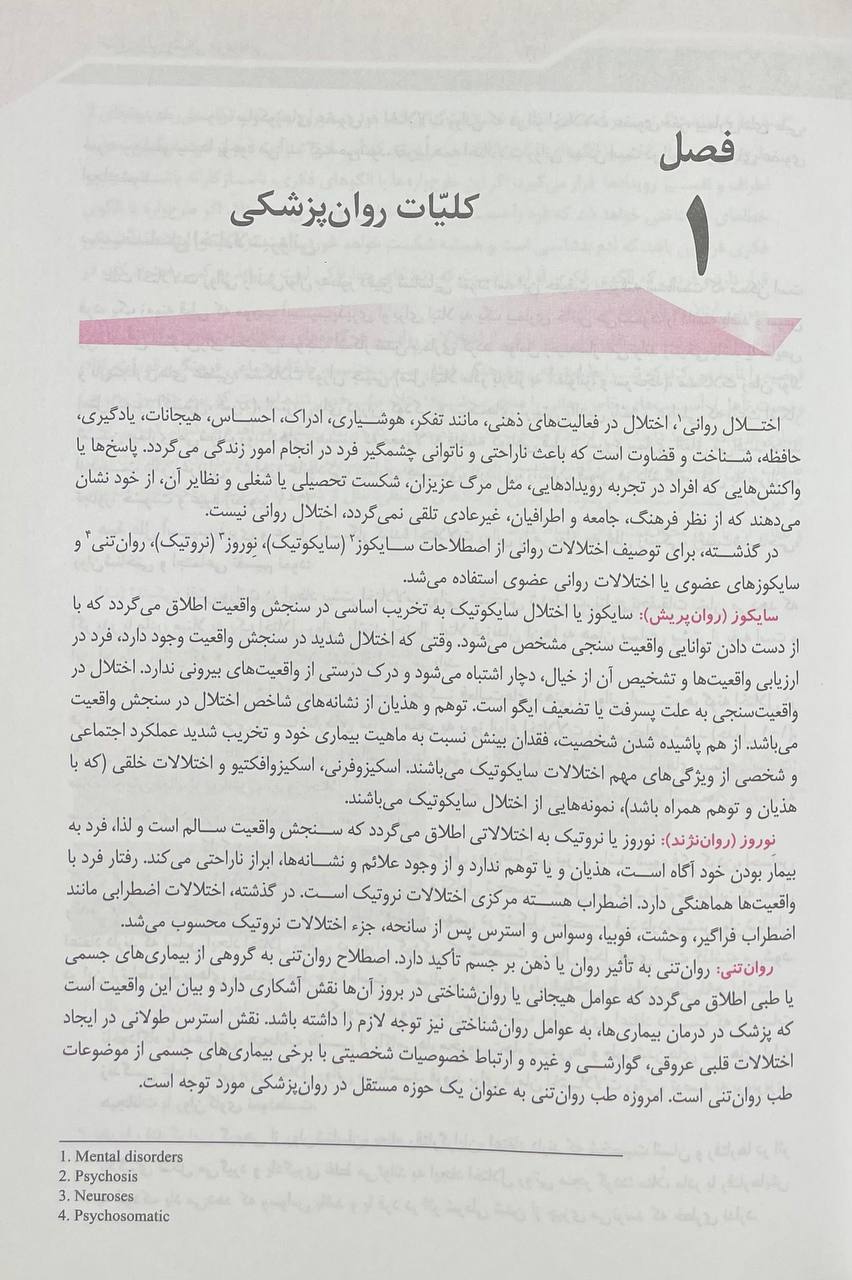 فصل
۱
کلیّات روان‌پزشکی
اختلال روانی۱، اختلال در فعالیت‌های ذهنی، مانند تفکر، هوشیاری، ادراک، احساس، هیجانات، یادگیری،
حافظه، شناخت و قضاوت است که باعث ناراحتی و ناتوانی چشمگیر فرد در انجام امور زندگی می‌گردد. پاسخ‌ها یا
واکنش‌هایی که افراد در تجربه رویدادهایی، مثل مرگ عزیزان، شکست تحصیلی یا شغلی و نظایر آن، از خود نشان
می‌دهند که از نظر فرهنگ، جامعه و اطرافیان، غیرعادی تلقی نمی‌گردد، اختلال روانی نیست.
در گذشته، برای توصیف اختلالات روانی از اصطلاحات سایکوز۲ (سایکوتیک)، نوروز۳ (نروتیک)، روان‌تنی۴ و
سایکوزهای عضوی یا اختلالات روانی عضوی استفاده می‌شد.
سایکوز (روان‌پریش): سایکوز یا اختلال سایکوتیک به تخریب اساسی در سنجش واقعیت اطلاق می‌گردد که با
از دست دادن توانایی واقعیت سنجی مشخص می‌شود. وقتی که اختلال شدید در سنجش واقعیت وجود دارد، فرد در
ارزیابی واقعیت‌ها و تشخیص آن از خیال، دچار اشتباه می‌شود و درک درستی از واقعیت‌های بیرونی ندارد. اختلال در
واقعیت‌سنجی به علت پسرفت یا تضعیف ایگو است. توهم و هذیان از نشانه‌های شاخص اختلال در سنجش واقعیت
می‌باشد. از هم پاشیده شدن شخصیت، فقدان بینش نسبت به ماهیت بیماری خود و تخریب شدید عملکرد اجتماعی
و شخصی از ویژگی‌های مهم اختلالات سایکوتیک می‌باشند. اسکیزوفرنی، اسکیزوافکتیو و اختلالات خلقی (که با
هذیان و توهم همراه باشد)، نمونه‌هایی از اختلال سایکوتیک می‌باشند.
نوروز (روان‌نژند): نوروز یا نروتیک به اختلالاتی اطلاق می‌گردد که سنجش واقعیت سالم است و لذا، فرد به
بیمار بودن خود آگاه است، هذیان و یا توهم ندارد و از وجود علائم و نشانه‌ها، ابراز ناراحتی می‌کند. رفتار فرد با
واقعیت‌ها هماهنگی دارد. اضطراب هسته مرکزی اختلالات نروتیک است. در گذشته، اختلالات اضطرابی مانند
اضطراب فراگیر، وحشت، فوبیا، وسواس و استرس پس از سانحه، جزء اختلالات نروتیک محسوب می‌شد.
روان‌تنی: روان‌تنی به تأثیر روان یا ذهن بر جسم تأکید دارد. اصطلاح روان‌تنی به گروهی از بیماری‌های جسمی
یا طبی اطلاق می‌گردد که عوامل هیجانی یا روان‌شناختی در بروز آن‌ها نقش آشکاری دارد و بیان این واقعیت است
که پزشک در درمان بیماری‌ها، به عوامل روان‌شناختی نیز توجه لازم را داشته باشد. نقش استرس طولانی در ایجاد
اختلالات قلبی عروقی، گوارشی و غیره و ارتباط خصوصیات شخصیتی با برخی بیماری‌های جسمی از موضوعات
طب روان‌تنی است. امروزه طب روان‌تنی به عنوان یک حوزه مستقل در روان‌پزشکی مورد توجه است.
1. Mental disorders
2. Psychosis
3. Neuroses
4. Psychosomatic